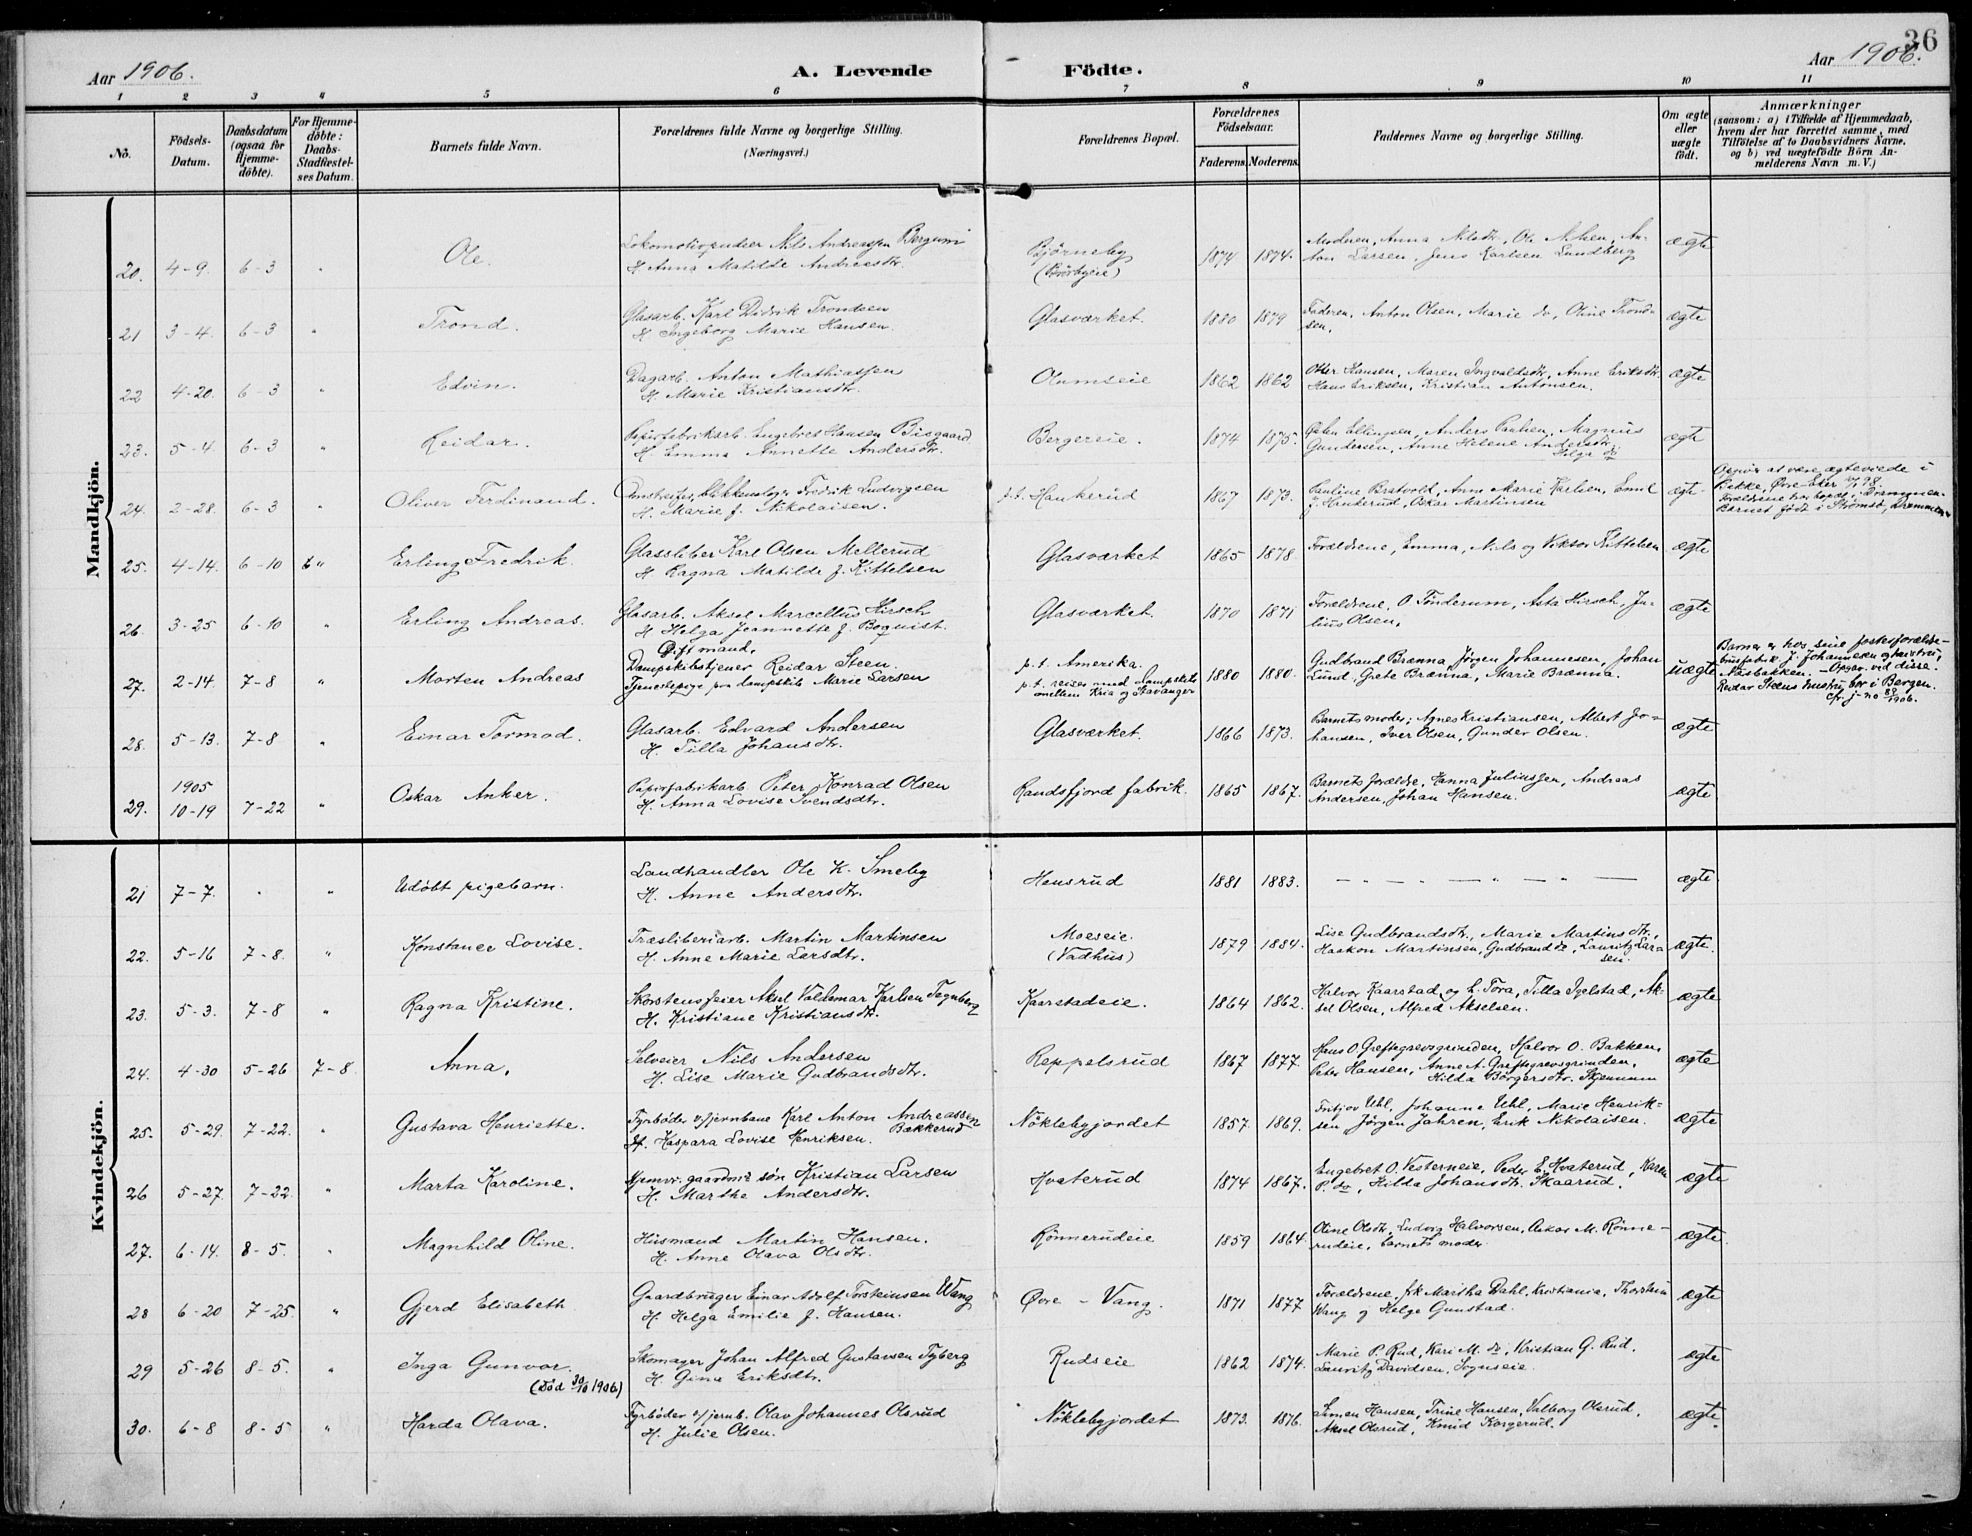 36
Aar 1906.
A. Levende
Födte.
Aar 1906.
1 2 3 4 5 6 7 8 9 10 11
No.
Födsels-
Datum.
Daabsdatum
(ogsaa for
Hjemme-
döbte).
For Hjemme-
döbte:
Daabs-
Stadfæstel-
ses Datum.
Barnets fulde Navn.
Forældrenes fulde Navne og borgerlige Stilling.
(Næringsvei.)
Forældrenes Bopæl.
Forældrenes
Födselsaar.
Faderens. Moderens.
Faddernes Navne og borgerlige Stilling.
Om ægte
eller
uægte
födt.
Anmærkninger
(saasom: a) i Tilfælde af Hjemmedaab,
hvem der har forrettet samme, med
Tilföielse af to Daabsvidners Navne,
og b) ved uægtefödte Börn An-
melderens Navn m. V.)
Mandkjön.
20. 4-9. 6-3 " Ole.
Lokomotivpudser Nils Andreassen Bergum
H. Anna Matilde Andreasdtr.
Bjørneby
1874 1874.
Moderen, Anna Nilsdtr, Ole Nilsen, An-
ton Larsen, Jens Karlsen Lundberg
ægte
21 3-4. 6-3 " Trond.
Glasarb. Karl Didrik Trondsen
H. Ingeborg Marie Hansen.
Glasværket.
1880 1879
Faderen, Anton Olsen, Marie do, Oline Trond-
sen,
ægte
22 4-20. 6-3 " Edvin.
Dagarb. Anton Mathiassen
H. Marie Kristiansdtr.
Olumseie
1862 1862
Otter Hansen, Maren Ingvaldsdtr, Anne Eriksdtr.
Hans Eriksen, Kristian Antonsen.
ægte
23. 5-4. 6-3 " Reidar.
Papirfabrikarb. Engebret Hansen Bisgaard
H. Emma Annette Andersdtr.
Bergereie.
1874 1875.
Østen Ellingsen, Anders Paulsen, Magnus
Gundersen, Anne Helene Andersdtr.
Helga do
ægte
24. 2-28. 6-3 " Oliver Ferdinand.
blikkenslager Fredrik Ludvigsen
H. Marie f. Nikolaisen.
p.t. Hankerud
1867 1873.
Pauline Bratvold, Anne Marie Karlsen, Emil
J. Hankerud, Oskar Martinsen
ægte
Opgiv. at være ægteviede i
Bakke, Øvre Eker
Forældrene har boped i Drammen.
Barnet født i Strømsø, Drammen
25. 4-14. 6-10 " Erling Fredrik.
Glassliber Karl Olsen Mellerud
H. Ragna Matilde f. Kittelsen
Glasværket
1865 1878.
Forældrene, Emma, Nils og Viktor Kittelsen
ægte
26. 3-25 6-10 " Erling Andreas.
Glasarb. Aksel Marcellius Hirsch
H. Helga Jeannette f. Boquist.
Glasværket.
1870 1871
Forældrene, O Tønderum, Asta Hirsch, Ju-
lius Olsen,
ægte
27. 2-14. 7-8 " Morten Andreas
Gift mand,
Dampskibstjener Reidar Steen.
Tjenestepige paa dampskib Marie Larsen
p.t. Amerika.
p.t. reiser med dampskib
mellem Kria og Stavanger
1880 1880.
Gudbrand Brænna, Jørgen Johannesen, Johan
Lund, Grete Brænna, Marie Brænna.
uægte
Barnet er hos sine fosterforældre
J. Johannesen og hustru,
Næsbakken. - Opgav. ved disse.
Reidar Steens hustru bor i Bergen.
cfr. j-no 89/1906.
28. 5-13. 7-8 " Einar Tormod.
Glasarb. Edvard Andersen
H. Tilla Johansdtr.
Glasværket.
1866 1873.
Barnets moder; Agnes Kristiansen, Albert Jo-
hansen, Iver Olsen, Gunder Olsen.
ægte
29. 1905
10-19 7-22 " Oskar Anker.
Papirfabrikarb Peter Konrad Olsen
H. Anna Lovise Svendsdtr.
Randsfjord fabrik.
1865 1867.
Barnets forældre, Hanna Juliussen, Andreas
Andersen, Johan Hansen.
ægte
Kvindekjön.
21 7-7. . " Udøbt pigebarn.
Landhandler Ole K. Smeby
H. Anne Andersdtr.
Hensrud
1881 1883.
— — — — " — " — —
ægte.
22. 5-16 7-8. " Konstance Lovise.
Træsliberiarb. Martin Martinsen
H. Anne Marie Larsdtr.
Moeseie.
(Vadhus)
1879 1884.
Lise Gudbrandsdtr, Marie Martinsdtr,
Haakon Martinsen, Gudbrand do, Lauritz Lar-
sen.
ægte.
23. 5-3. 7-8 " Ragna Kristine.
Skorstensfeier Aksel Valdemar Karlsen Tegnberg
H. Kristiane Kristiansdtr.
Kaarstadeie.
1864 1862.
Halvor Kaarstad og h. Tora, Tilla Igelstad, Ak-
sel Olsen, Alfred Akselsen.
ægte
24. 4-30 5-26 7-8. Anna.
Selveier Nils Andersen
H. Lise Marie Gudbrandsdtr.
Reppelsrud
1867 1877.
Hans O. Greftegrevsgrinden, Halvor O. Bakken,
Peter Hansen, Anne A. Greftegrevsgrinden,
Hilda Børgersdtr. Skjennum
ægte
25. 5-29. 7-22. " Gustava Henriette.
Fyrbøder v/jernbane Karl Anton Andreassen
Bækkerud
H. Kaspara Lovise Henriksen.
Nöklebyjordet
1857. 1869.
Fritjov Uhl, Johanne Uhl, Marie Henrik-
sen, Jørgen Jahren, Erik Nikolaisen.
ægte
26 5-27. 7-22. " Marta Karoline.
gaardmds søn Kristian Larsen
H. Marthe Andersdtr.
Hvaterud
1874 1867.
Engebret O. Vesterneie, Peder E. Hvaterud, Karen
P. do, Hilda Johansdtr. Skaarud.
ægte
27. 6-14. 8-5. " Magnhild Oline.
Husmand Martin Hansen.
H. Anne Olava Olsdtr.
Rönnerudeie
1859 1864.
Oline Olsdtr, Ludvig Halvorsen, Oskar M. Rönne-
rudeie, barnets moder
ægte.
28 6-20 7-25. " Gjerd Elisabeth
Gaardbruger Einar Adolf Torsteinsen Wang
H. Helga Emilie f. Hansen.
Øvre - Vang.
1871 1877
Forældrene, frk Martha Dahl, Kristiania, Thorstein
Wang og Helge Gunstad.
ægte
29 5-26 8-5. " Inga Gunvor.
(Død 30/10 1906)
Skomager Johan Alfred Gustavsen Tyberg
H. Gina Eriksdtr.
Rudseie
1862 1874.
Marie P. Rud, Kari M. do, Kristian G. Rud,
Lauritz Davidsen, Sognseie.
ægte
30. 6-8 8-5 " Harda Olava.
Fyrbøder v/jernb. Olav Johannes Olsrud
H. Julie Olsen.
Nöklebyjordet
1873. 1876.
Simen Hansen, Trine Hansen, Valborg Olsrud,
Aksel Olsrud, Knud Korgerud.
ægte.